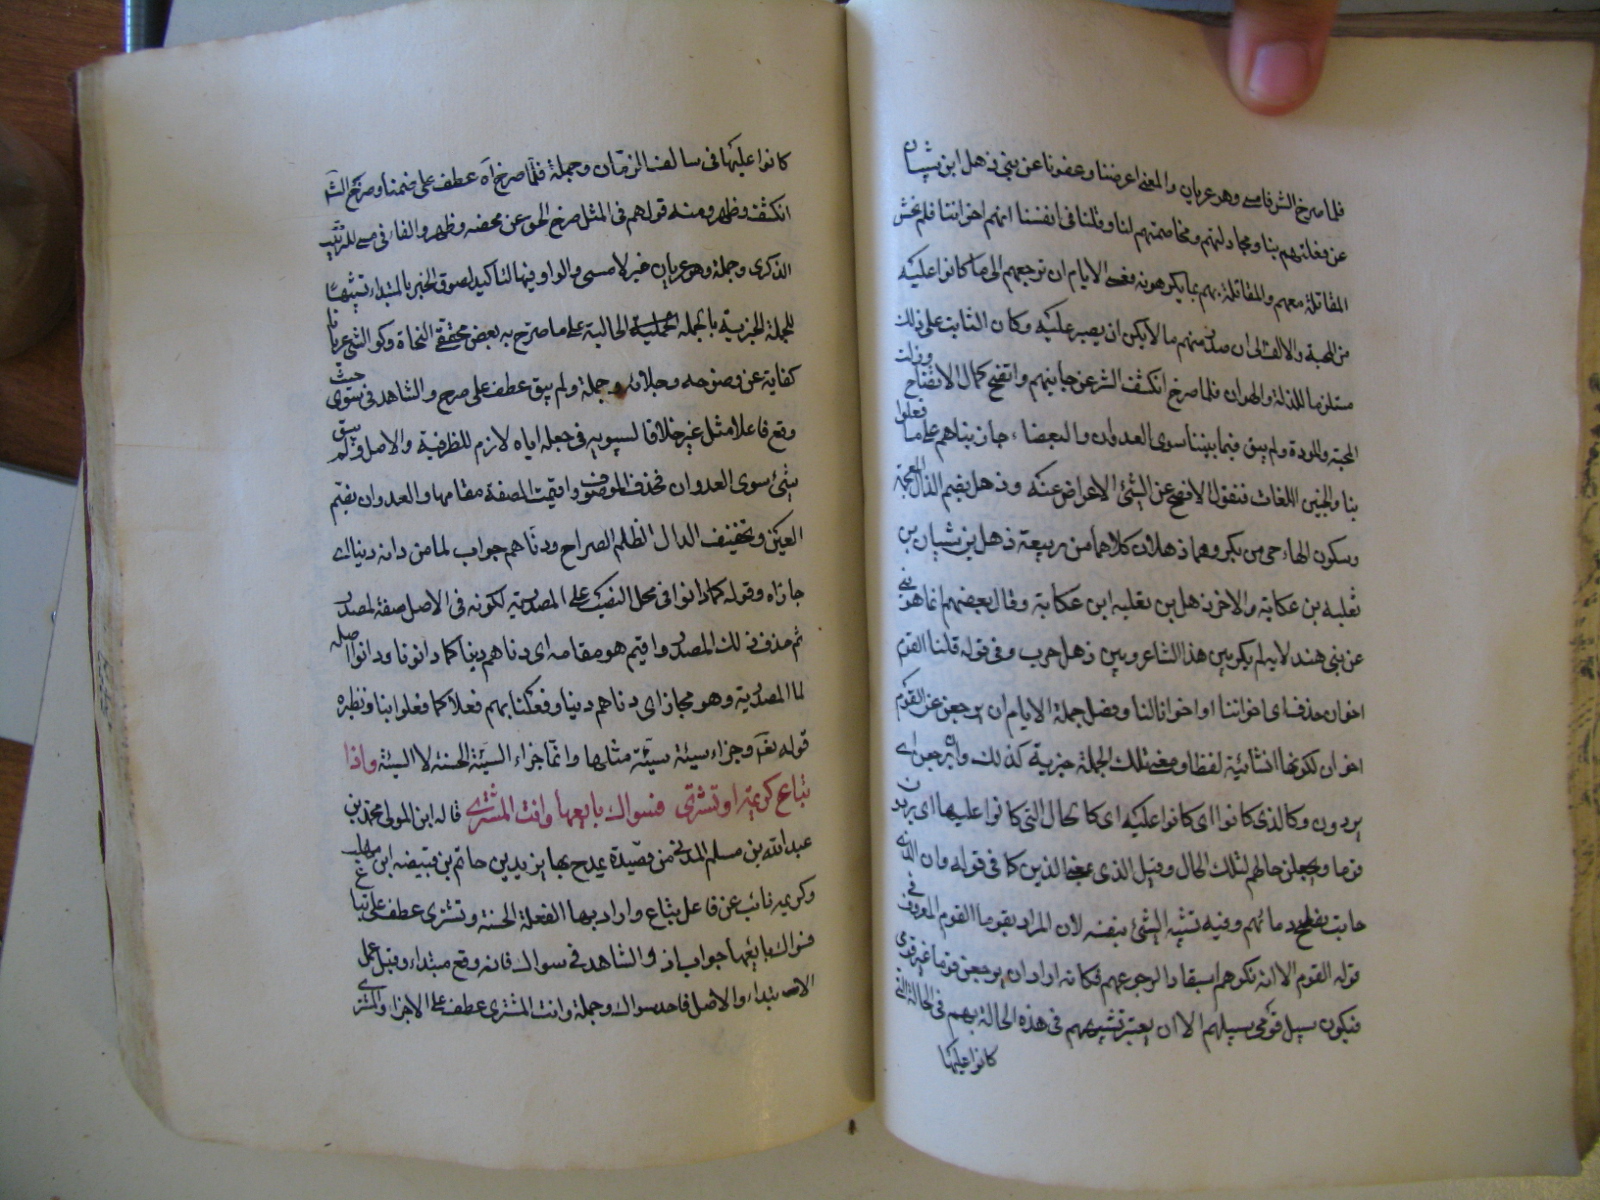 فلما صرح الشر فامسى وهو عريان والمعنى اعرضنا وعفونا عن بني ذهل ابن شيبان
عن فعلتهم بنا ومجادلتهم ومخاصمتهم لنا وقلنا في انفسنا انهم اخواننا فلم نخش
المقاتلة معهم والمقابلة بهم بما يكرهونه فعسى الايام ان ترجعهم الى ما كانوا عليه
من المحبة والالف الى ان صدر منهم ما لا يمكن ان يصبر عليه وكان الثابت على ذلك
مستلزما للذلة والهوان فلما صرح انكشف الشر عن جانبهم واتضح كمال الاتضاح وزالت
المحبة والمودة ولم يبق فيما بيننا سوى العدوان والبعضاء جازيناهم على ما فعلوا
بنا اللغات فنقول الافصح عن الشئ الاعراض عنه وذهل بضم الذال المعجمة
وسكون الهاء حي من بكر وهما ذهلان كلاهما من ربيعة ذهل بن شيبان بن
ثعلبه بن عكابة والاخر ذهل بن ثعلبه ابن عكابة وقال بعضهم انما هو بني
عن بني هند لانه لم يكن بين هذا الشاعر وبين ذهل حرب وفي قوله قلنا القوم
اخوان حذف اي اخواننا او اخوانا لنا وفصل جملة الايام ان يرجعن عن القوم
اخوان لكونها انشائية لفظا ومعنى وتلك الجملة خبرية كذلك وان يرجعن اي
يرددن وكالذي كانوا اي كانوا عليه اي كالحال التي كانوا عليها اي يرددن
قوما ويجعلن حالهم لتلك الحال وقيل الذي بمعنى الذين كما في قوله وان الذي
حانت بفلج دماؤهم وفيه تشبيه الشئ بنفسه لان المراد بقوما القوم المعروف في
قوله القوم الا انه نكرهم سبقا والرجوع عنهم فكانه اراد ان يرجعن قوما غير قومي
فيكون سبيل قومي سبيلهم الا ان يعتبر تشبيههم في هذه الحالة بهم في الحالة التي
كانوا عليها
كانوا عليها في سالف الزمان وجملة فلما صرح آه عطف على ضمنا وصرح الشر
انكشف وظهر ومنه قولهم في المثل صرح الحق عن محضه وظهر والفاء في للترتيب
الذكرى وجملة وهو عريان خبر لامسى والواو فيها لتاكيد لصوق الخبر بالمبتداء تشبيها
للجملة الخبرية بالجملة الحالية على ما صرح به بعض محققي النحاة وكون الشئ عريانا
كناية عن وضوحه وجلائه وجملة ولم يبق عطف على صرح والشاهد في سوى حيث
وقع فاعلا مثل غير خلافا لسيبويه في جعله اياه لازم للظرفية والاصل ولم يبق
شئ سوى العدوان فحذف الموصوف واقيمت الصفة مقامها والعدوان بضم
العين وتخفيف الدال الظلم الصراح ودناهم جواب لما من دانه دينا اي
جازاه وقوله كما دانوا في محل النصب على المصدرية لكونه في الاصل صفة لمصدر
ثم حذف ذلك المصدر واقيم هو مقامه اي دناهم دينا كما دانونا ودانوا صله
لما المصدرية وهو مجاز اي دناهم دينا وفعلنا بهم فعلا كما فعلوا بنا ونظيره
قوله تع وجزاء سيئة سيئة مثلها وانما جزاء السيئة الحسنة لا السيئة واذا
تباع كريمة او تشترى فسواك بايعها وانت المشترى قاله ابن المولى محمد بن
عبد الله بن مسلم المدني من قصيدة يمدح بها يزيد بن حاتم بن قبيصه ابن مهلب
وكريمه نائب عن فاعل تباع واراد بها الفعلة الحسنة وتشترى عطف على تباع
فسواك بايعها جواب اذا والشاهد في سواك فانه وقع مبتداء وقبل عمل
الابتداء والاصل فاحد سواك وجملة وانت المشترى عطف على الاجزاء والمشترى